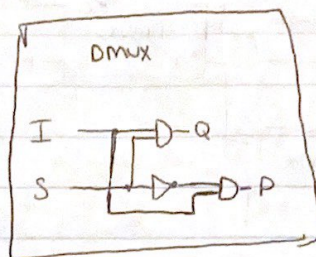 DMUX
I
Q
S
P